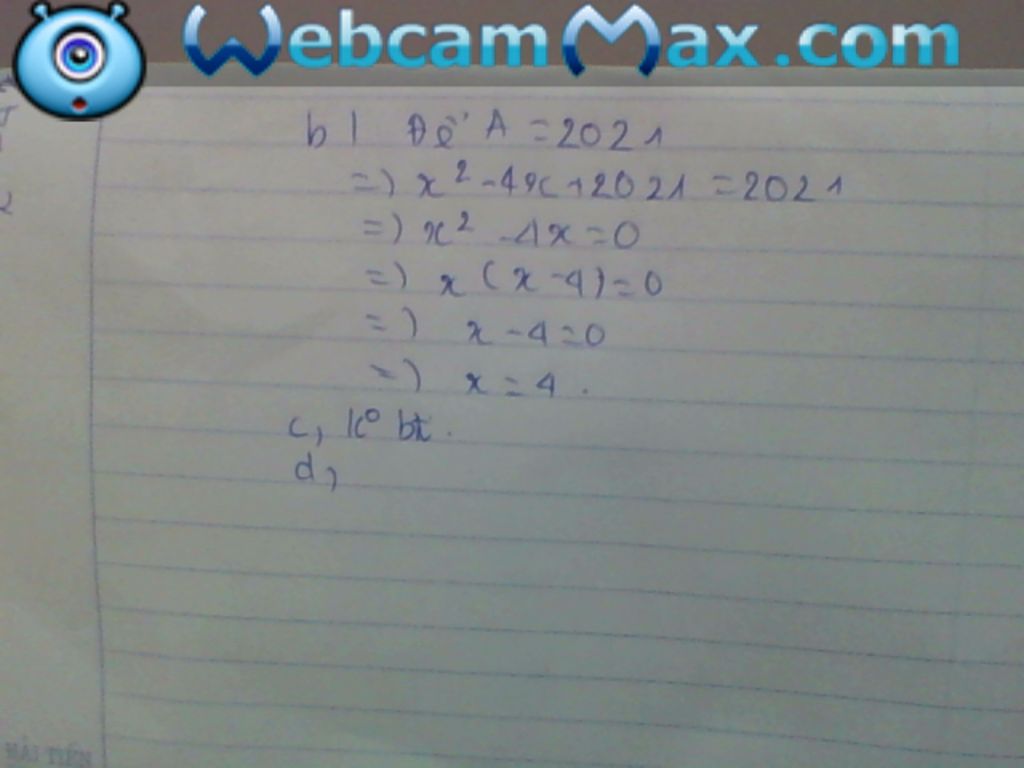 WebcamMax.com
b) Để A = 2021
=) x² - 4x + 2021 = 2021
=) x² - 4x = 0
=) x (x - 4) = 0
=) x - 4 = 0
=) x = 4 .
c, K° bt .
d,
HẢI TIẾN